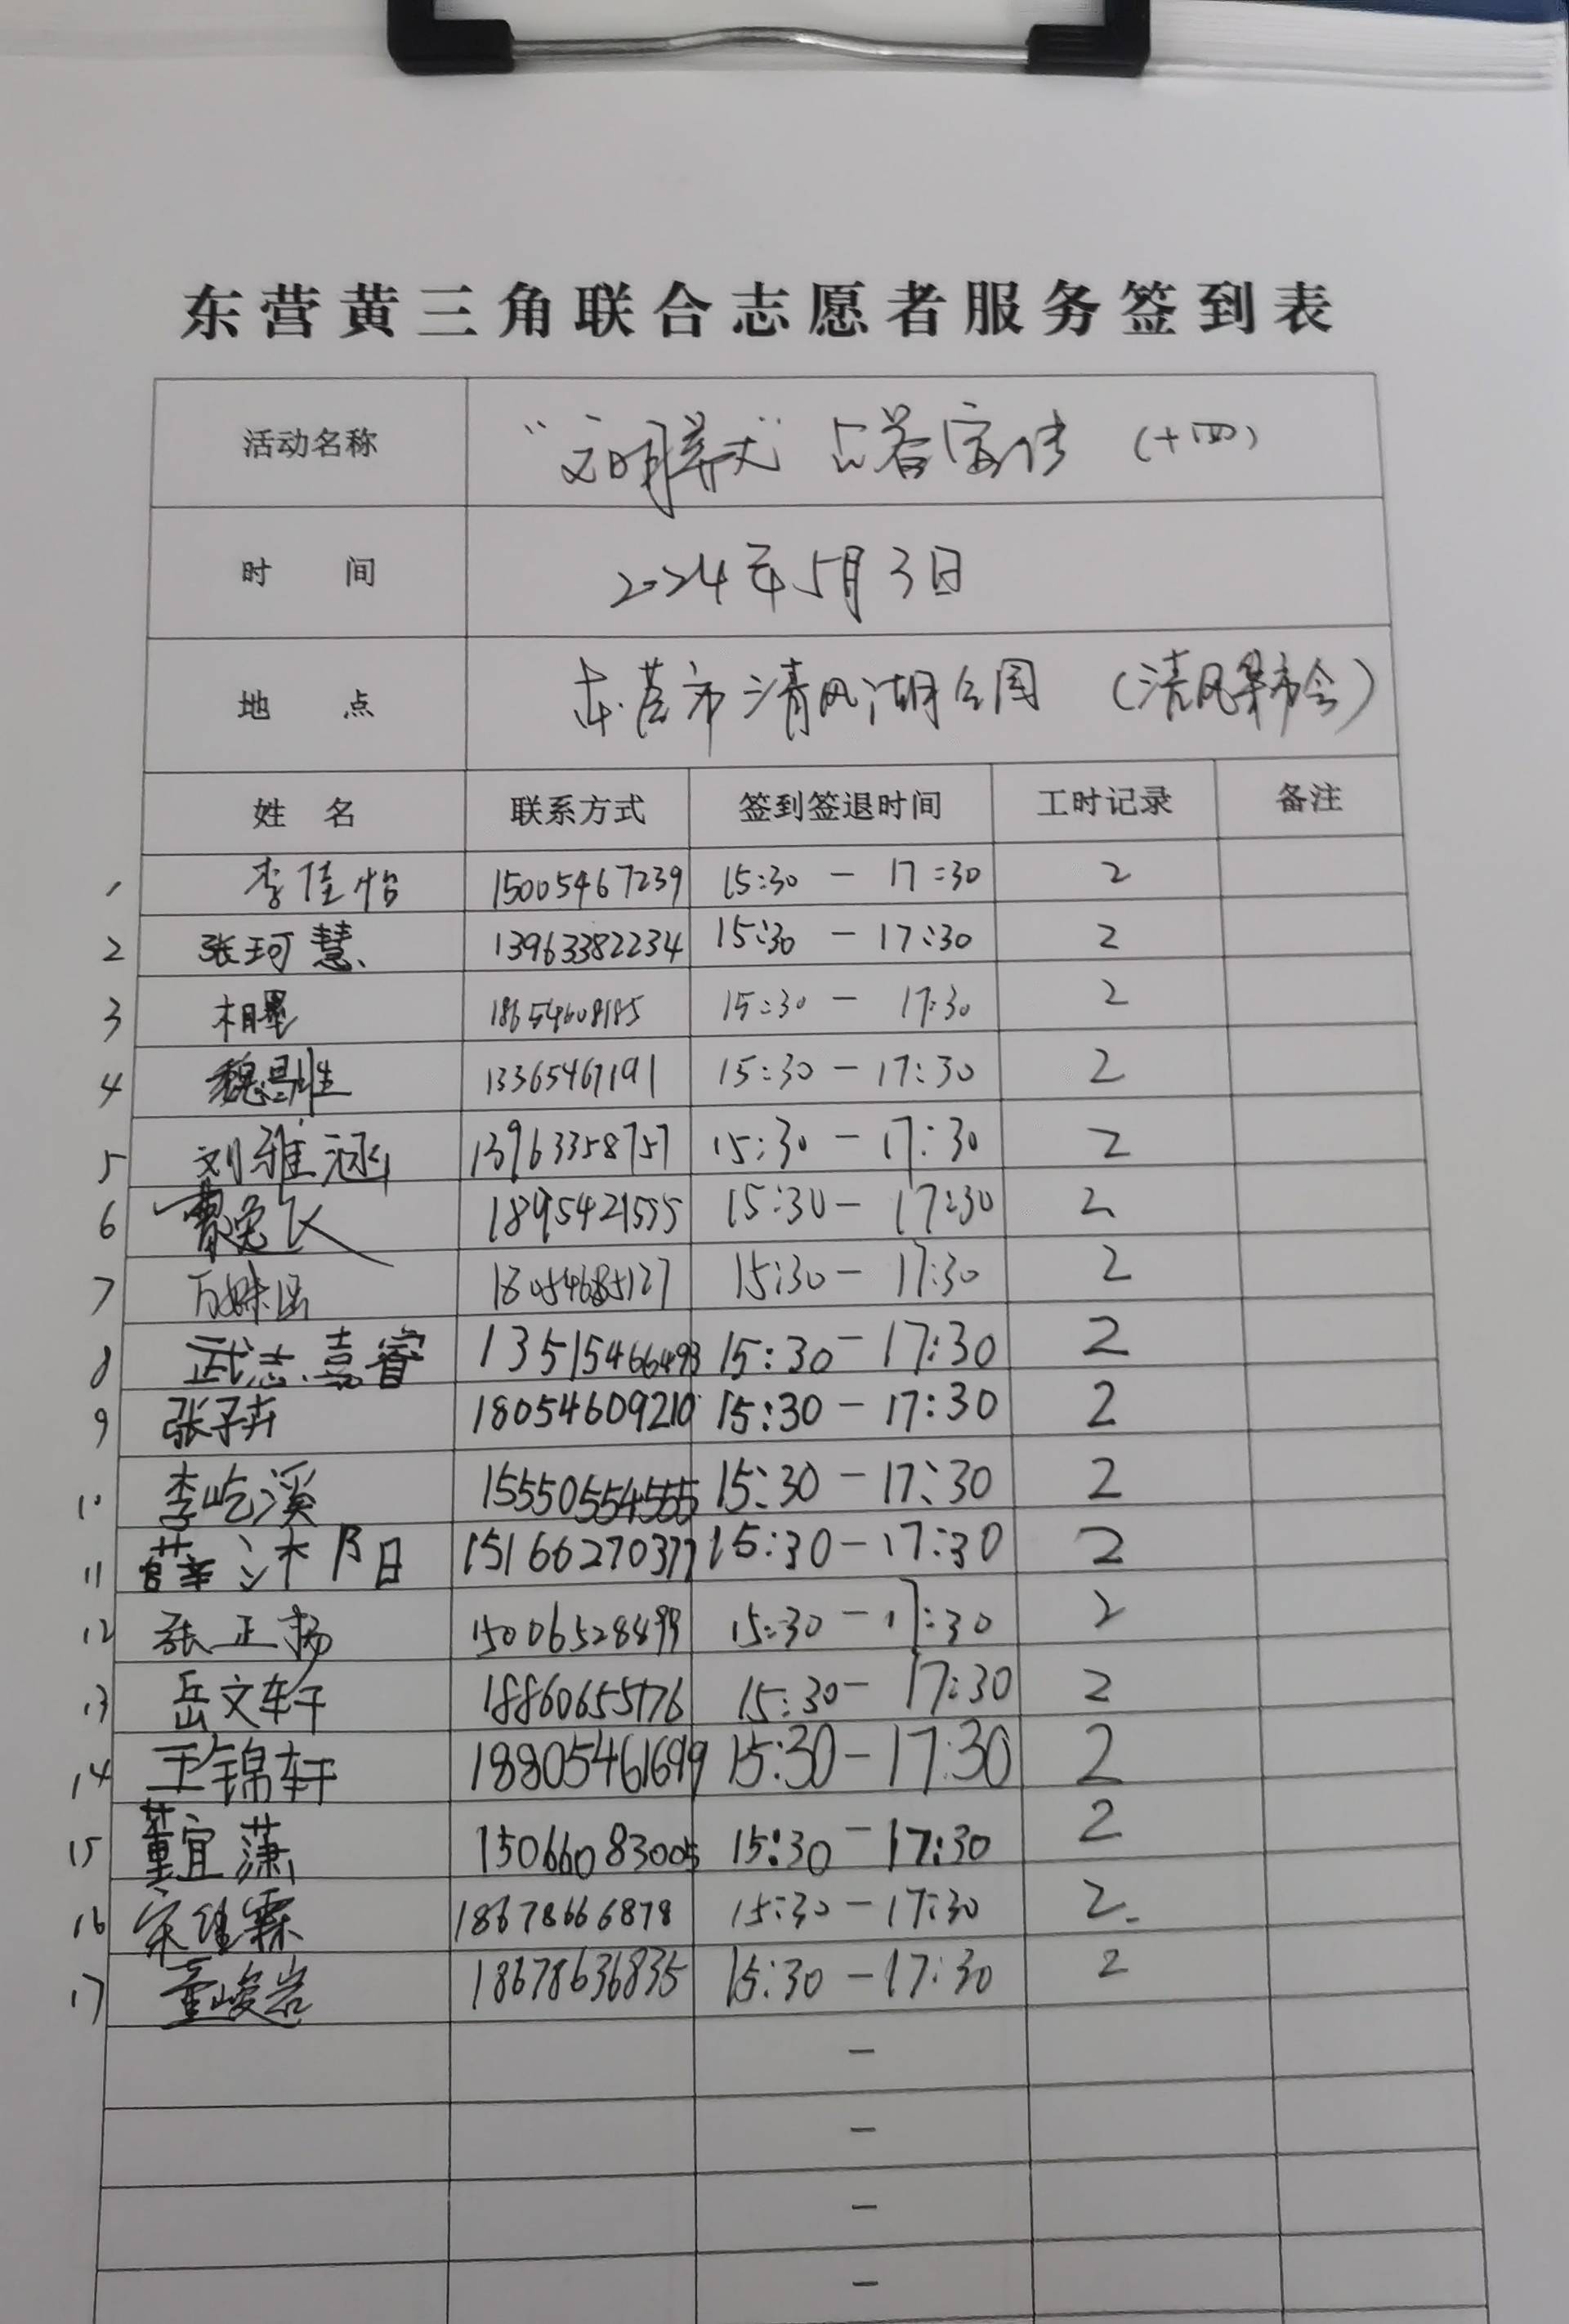 东营黄三角联合志愿者服务签到表
活动名称 “文明养犬” 宣传 (十四)
时 间 2024年5月3日
地 点 东营市清风湖公园 (清风集市会)
姓 名 联系方式 签到签退时间 工时记录 备注
1 李佳怡 15005467239 15:30 - 17:30 2
2 张珂慧 13963382234 15:30 - 17:30 2
3 相墨 18654608185 15:30 - 17:30 2
4 魏 13365467191 15:30 - 17:30 2
5 刘雅涵 13963358757 15:30 - 17:30 2
6 曹逸飞 15:30 - 17:30 2
7 万姝函 15:30 - 17:30 2
8 武志嘉睿 13515466493 15:30 - 17:30 2
9 张子卉 18054609210 15:30 - 17:30 2
10 李屹溪 15550554555 15:30 - 17:30 2
11 薛沐阳 15166270377 15:30 - 17:30 2
12 张正扬 15006528499 15:30 - 17:30 2
13 岳文轩 18860655176 15:30 - 17:30 2
14 王锦轩 18805461699 15:30 - 17:30 2
15 董宜潇 15066083005 15:30 - 17:30 2
16 宋佳霖 18678666878 15:30 - 17:30 2
17 董峻岩 18678636835 15:30 - 17:30 2
-
-
-
-